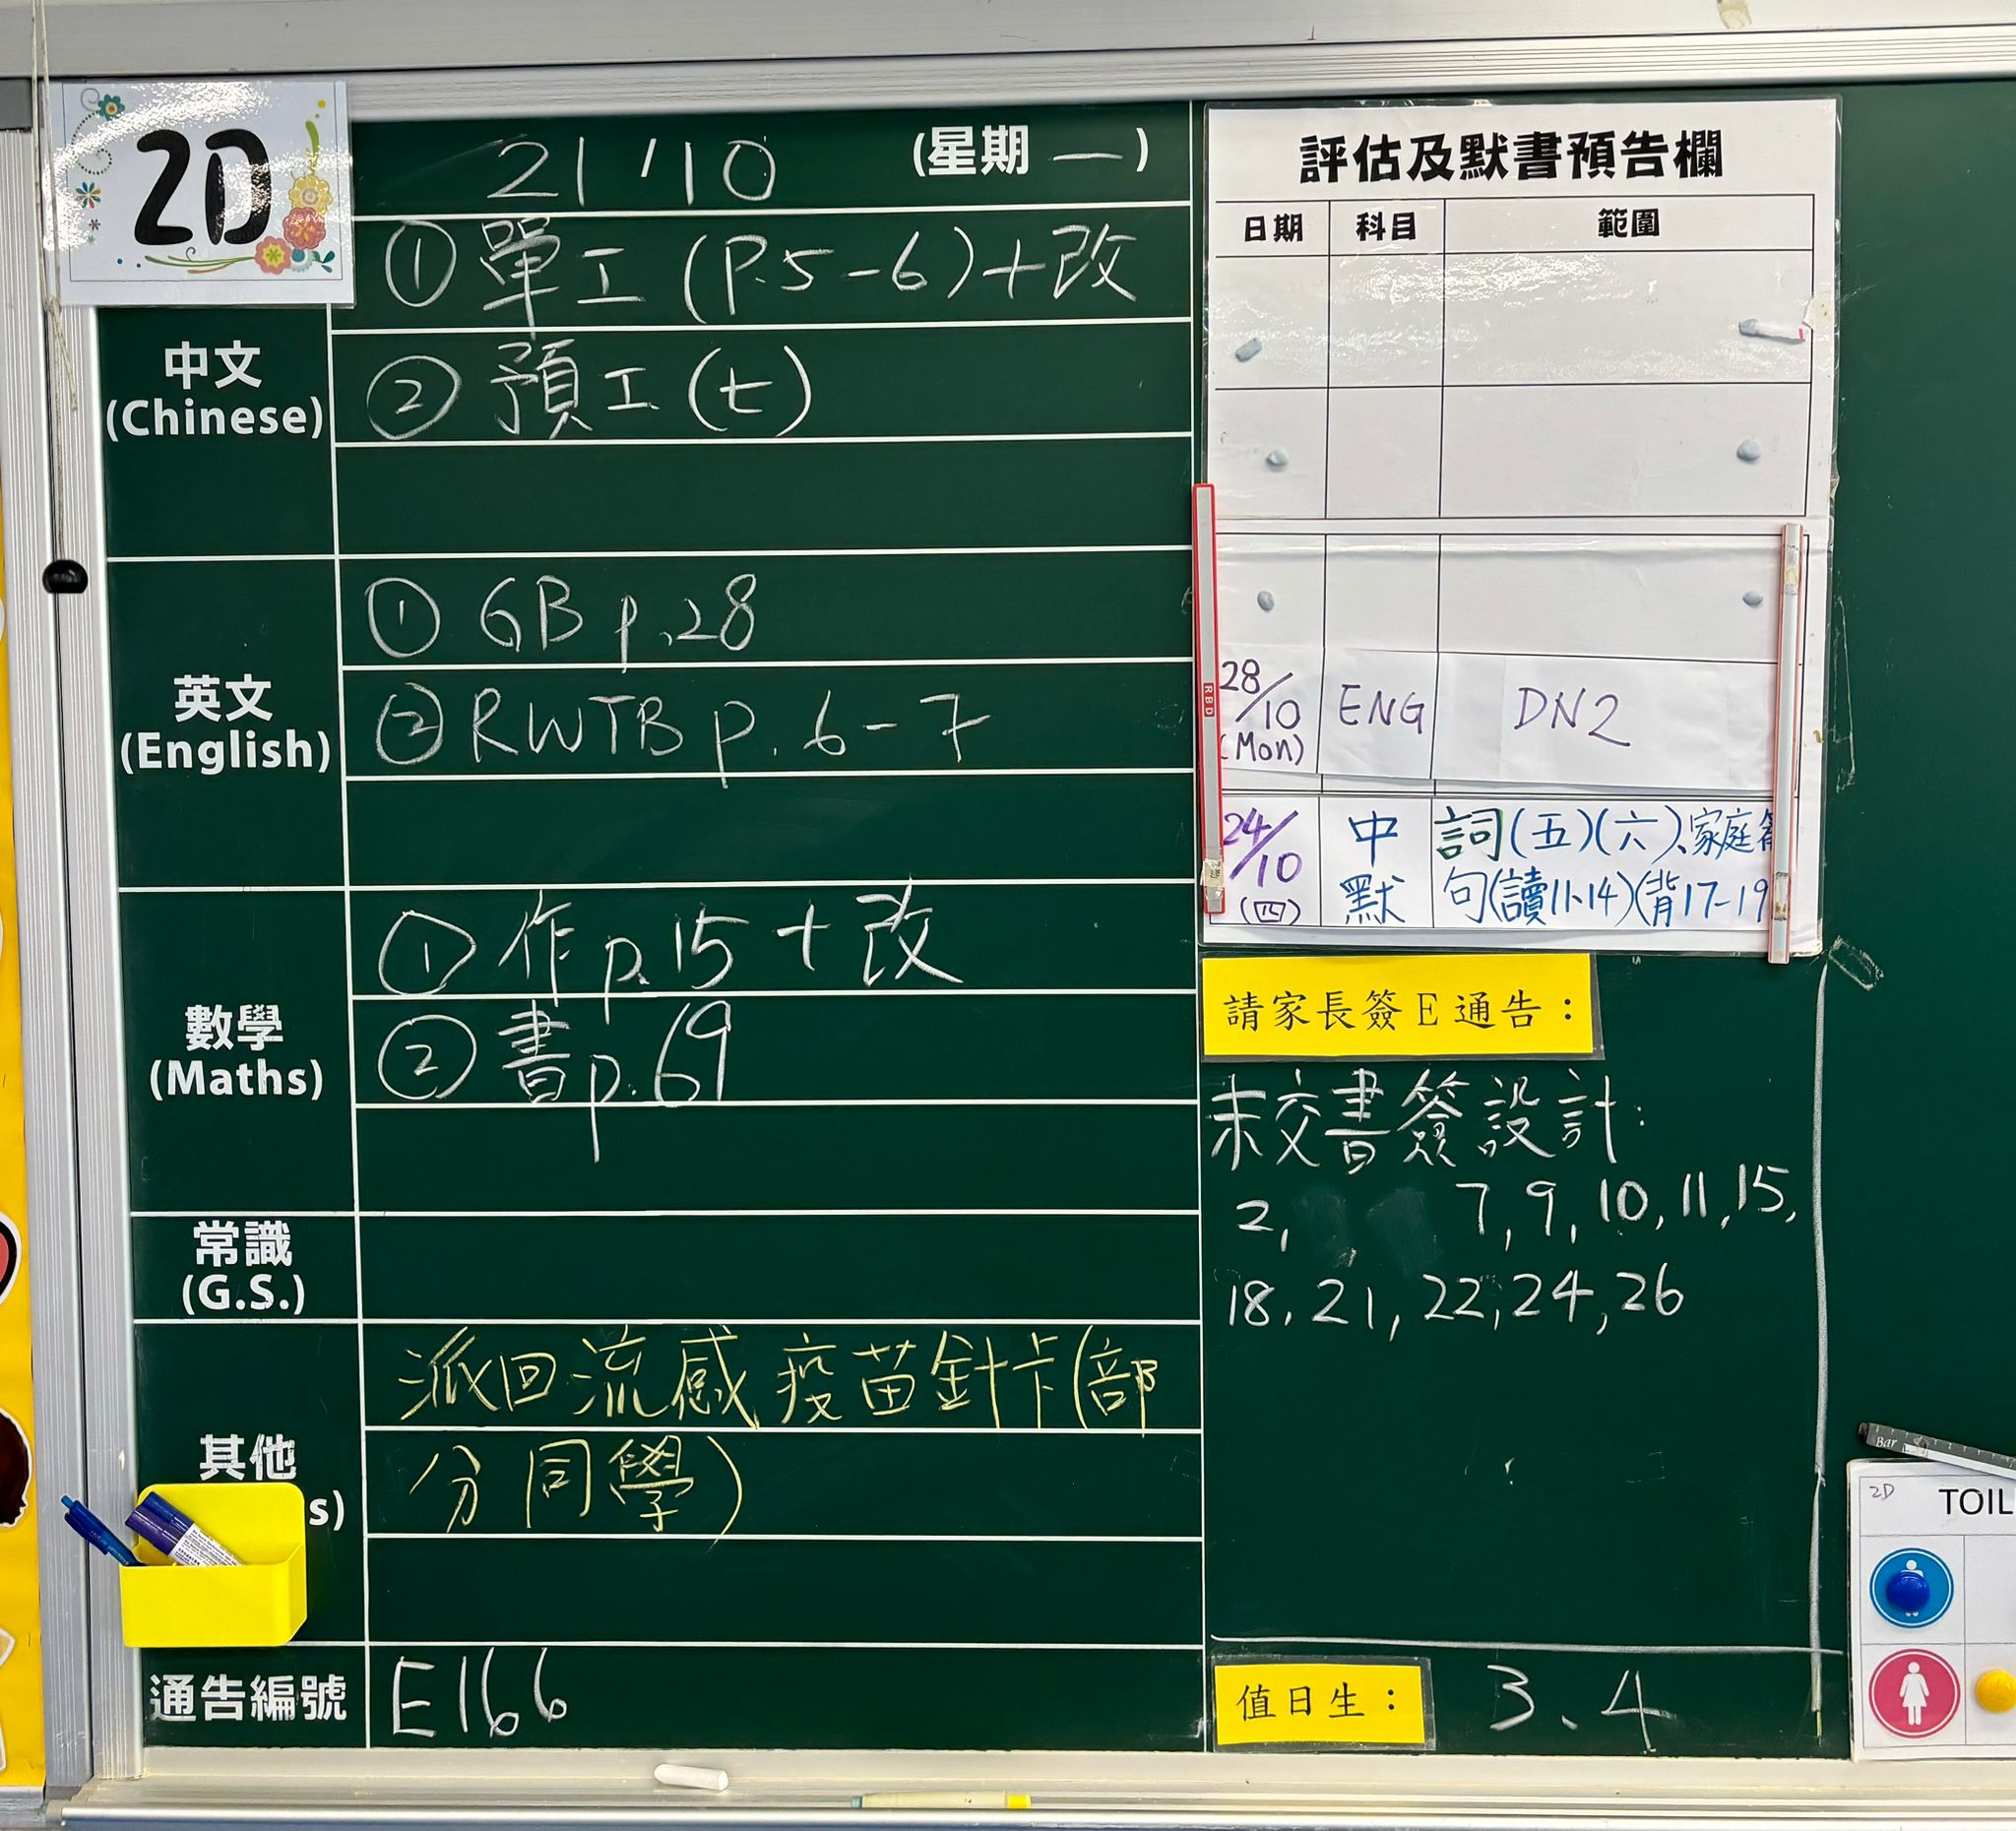 2D
21/10 (星期一)
中文
(Chinese)
① 單工 (P.5-6)+改
② 預工 (七)
英文
(English)
① GB p.28
② RWTB p.6-7
數學
(Maths)
① 作 p.15 + 改
② 書 p.69
常識
(G.S.)
其他
s)
派回流感疫苗針卡(部
分同學)
通告編號 E166
評估及默書預告欄
日期 科目 範圍
28/10 (Mon) ENG DN2
24/10 (四) 中默 詞(五)(六)、家庭
句(讀11-14)(背17-19
RBD
請家長簽E通告：
未交書簽設計:
2, 7, 9, 10, 11, 15,
18, 21, 22, 24, 26
值日生： 3、4
Bar
2D
TOIL